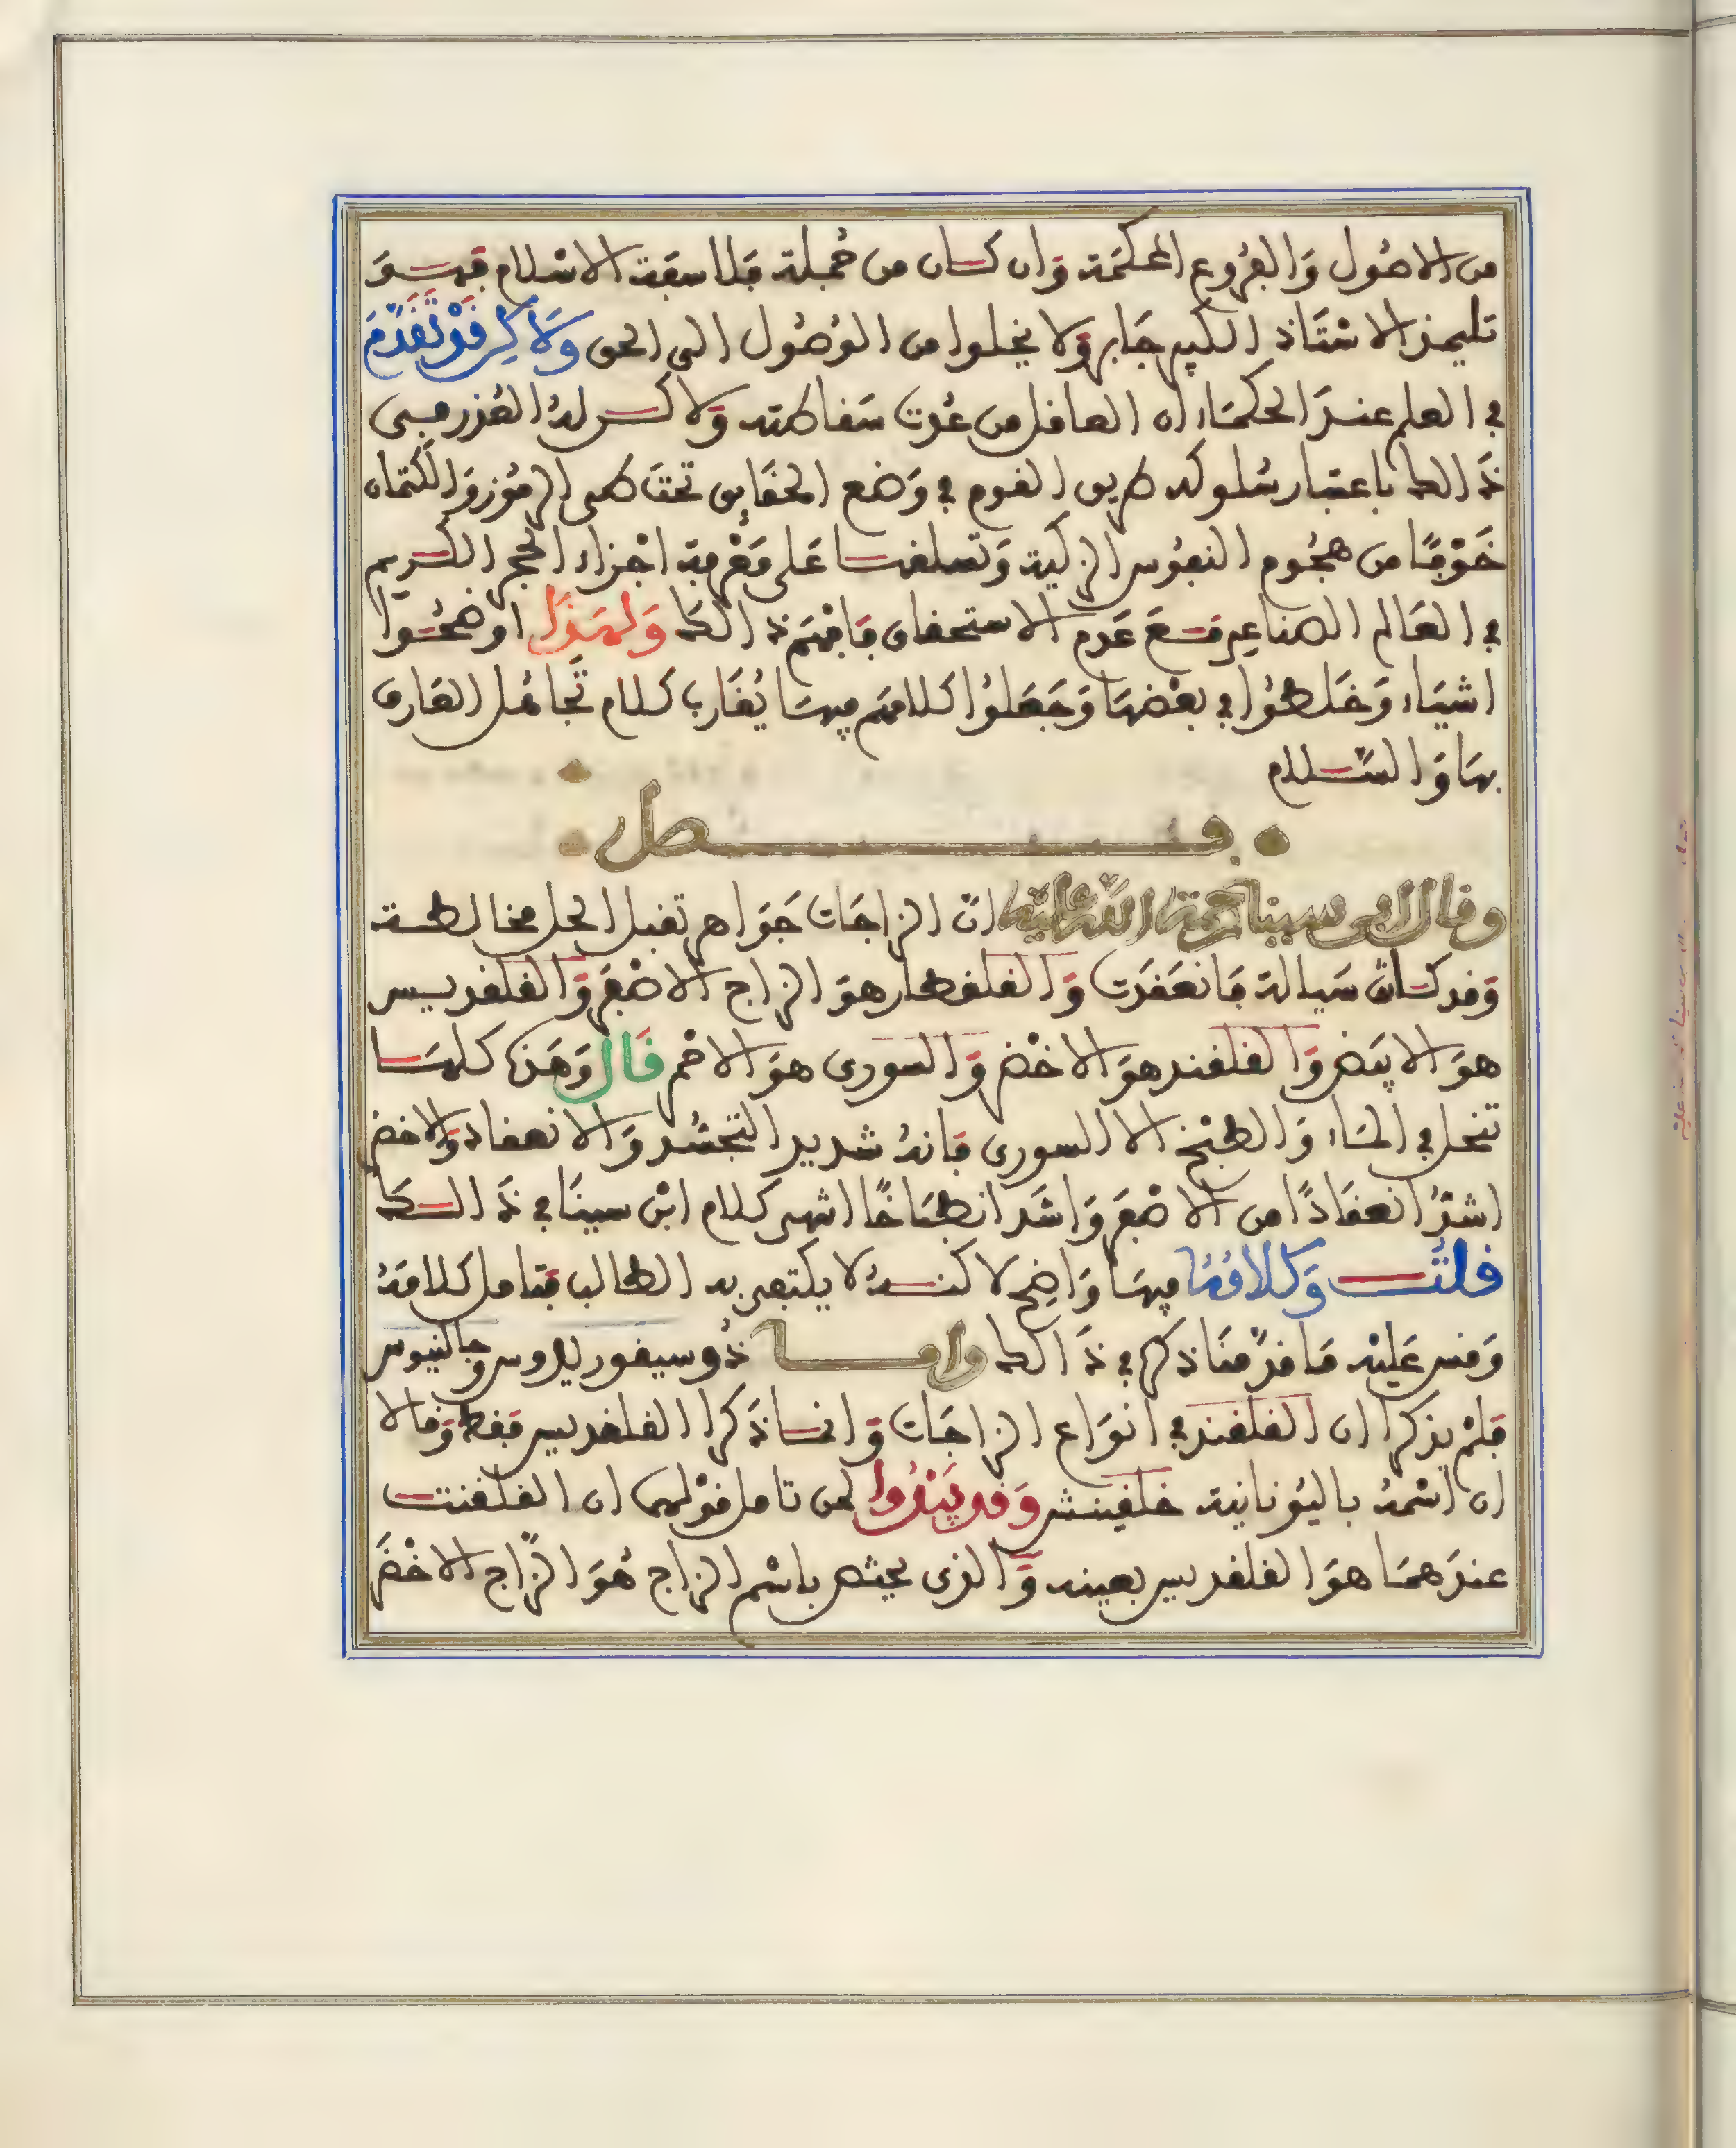 من الاصُول وَالفرُوع المحكمَة وَان كـان من جُملة فلاسفة الاسْلام فهـوَ
تلميذ الاسْتَاذ الكبير جَابر وَلا يخلوا من الوُصُول الى الحق وَلاكِن قَدْ تقَدَّمَ
في العلم عندَ الحكمَاء ان العاقل من عُدت سَقاطته وَلاكـن لهُ العُذر في
ذَالك باعتبار سُلوكه طريق القوم في وَضع الحقَايق تحتَ طى الرمُوز وَالكتمان
خَوْفًا من هجُوم النفوُس الزكية وَتسلطهـا عَلى مَعْرفة اجْزاء الحجر الكـريم
في العَالم الصناعي مَـعَ عَدم الاستحقاق فافهَمْ ذالك وَلهَذَا اوضحُـوا
اشيَاء وَخَلطوُا في بعْضهَا وَجَعَلوُا كلامهَم فيهَا يُقَارب كلام تَجَاهُل العَارف
بهَا وَالسَّـلام
فـصل
وقال ابن سينا رحمة الله عليه انّ الزاجَات جَوَاهر تقبل الحل مخالطـة
وَقد كـانت سَيالة فَانعَقدَت وَالقلقطار هوَ الزاج الاصْفَر وَالقلقديـس
هوَ الابيَض وَالقلقند هوَ الاخْضر وَالسورى هوَ الاحْمر قَال وَهَذه كلهَـا
تنحل في المَـاء وَالطبْخ الا السورى فَانهُ شديد التجسُّد وَالانعقاد وَالاخضر
اشدُّ انعقَادًا من الاصْفَر وَاشَد انطبَاخًا اشهر كلام ابْن سينَا في ذَالـكَ
قلتُ وَكلامُهُ فيهَا وَاضِح لاكنـهُ لا يكتفى به الطالب فتامل كلامَهُ
وَقس عَليْه مَا قدَّمْنَا ذكره في ذَالك وامـا ذُوسيقوريدوس وجالنيوس
فلمْ يذكرا ان القلقند في انوَاع الزاجَات وَانمـا ذَكرا القلقديس فقط وَقالا
ان اسْمهُ باليُونانية خلقينش وَقد يَبْدُوا لمن تامل قوْلهما ان القلقنت
عندَهمَا هوَ القلقديس بعينه وَالذى يختص باسْم الزاج هُوَ الزَّاج الاخْضَر